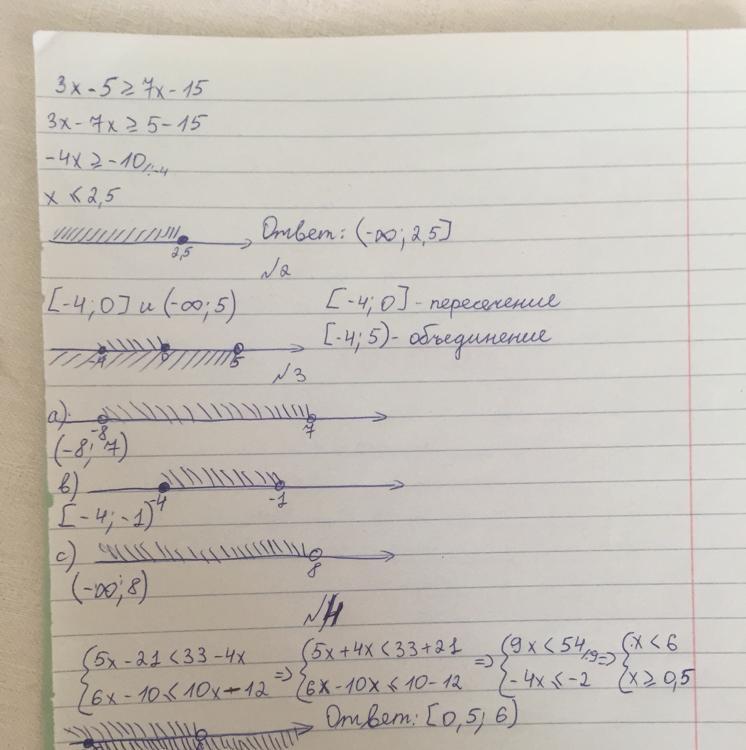 3x - 5 ≥ 7x - 15
3x - 7x ≥ 5 - 15
-4x ≥ -10 /:-4
x ≤ 2,5
2,5
Ответ: (-∞; 2,5]
№2
[-4; 0] и (-∞; 5)
[-4; 0] - пересечение
[-4; 5) - объединение
-4 0 5
№3
а)
-8 7
(-8; 7)
в)
-4 -1
[-4; -1)
с)
8
(-∞; 8)
№4
{5x - 21 < 33 - 4x => {5x + 4x < 33 + 21 => {9x < 54 /:9 => {x < 6
{6x - 10 ≤ 10x - 12 {6x - 10x ≤ 10 - 12 {-4x ≤ -2 {x ≥ 0,5
Ответ: [0,5; 6)